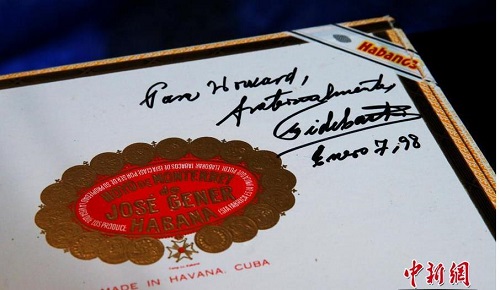 Habanos
Para Howard,
fraternalmente
Fidel Castro
Enero 7, 98
HOYO DE MONTERREY
de
JOSE GENER
HABANA
MADE IN HAVANA, CUBA
中新網